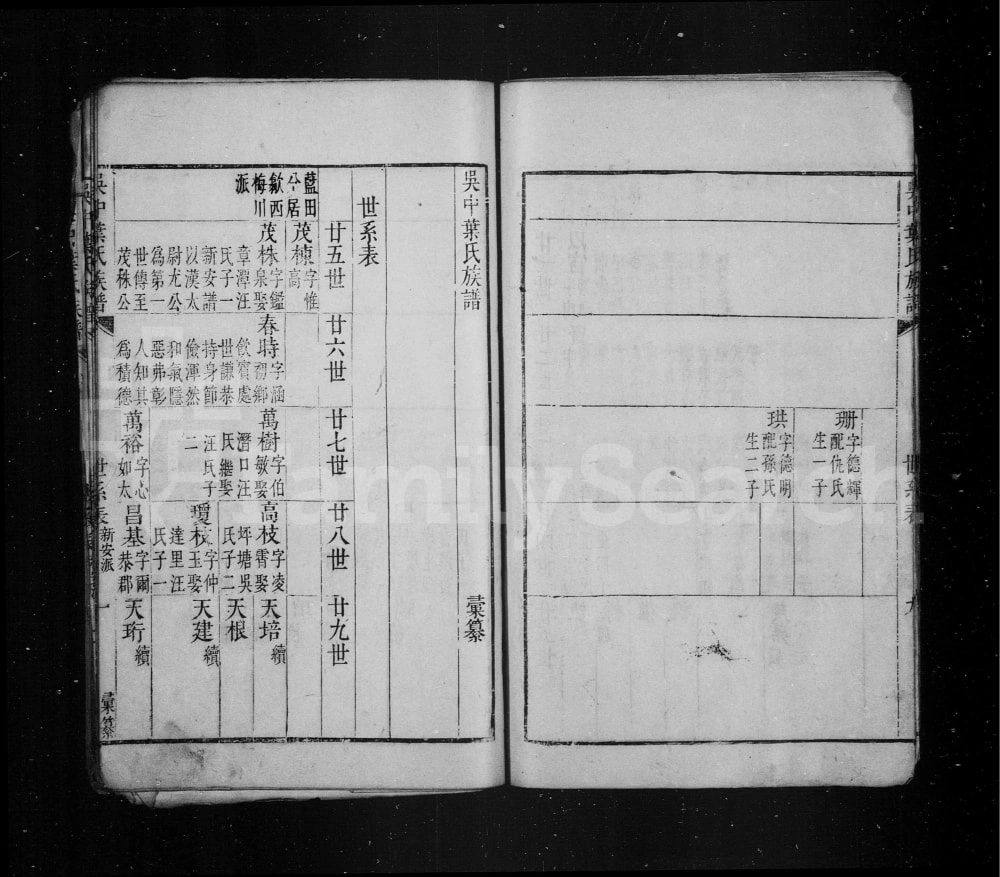 珊字德輝
配仇氏
生一子
珙字德明
配孫氏
生二子
吳中葉氏族譜
世系表
九
吳中葉氏族譜
彙纂
世系表
廿五世
廿六世
廿七世
廿八世
廿九世
藍田
分居
歙西
梅川
派
茂棟字惟
高
茂株字鑑
泉娶
章潭汪
氏子一
新安譜
以漢太
尉尤公
為第一
世傳至
茂株公
春時字涵
初鄉
飲賓處
世謙恭
持身節
儉渾然
和氣隱
惡弗彰
人知其
為積德
萬樹字伯
敏娶
潛口汪
氏繼娶
汪氏子
二
高枝字凌
霄娶
坪塘吳
氏子二
天培
續
天根
瓊枝字仲
玉娶
達里汪
氏子一
天建
續
萬裕字心
如太
昌基字爾
恭郡
天珩
續
吳中葉氏族譜
世系表
新安派
一
彙纂
FamilySearch